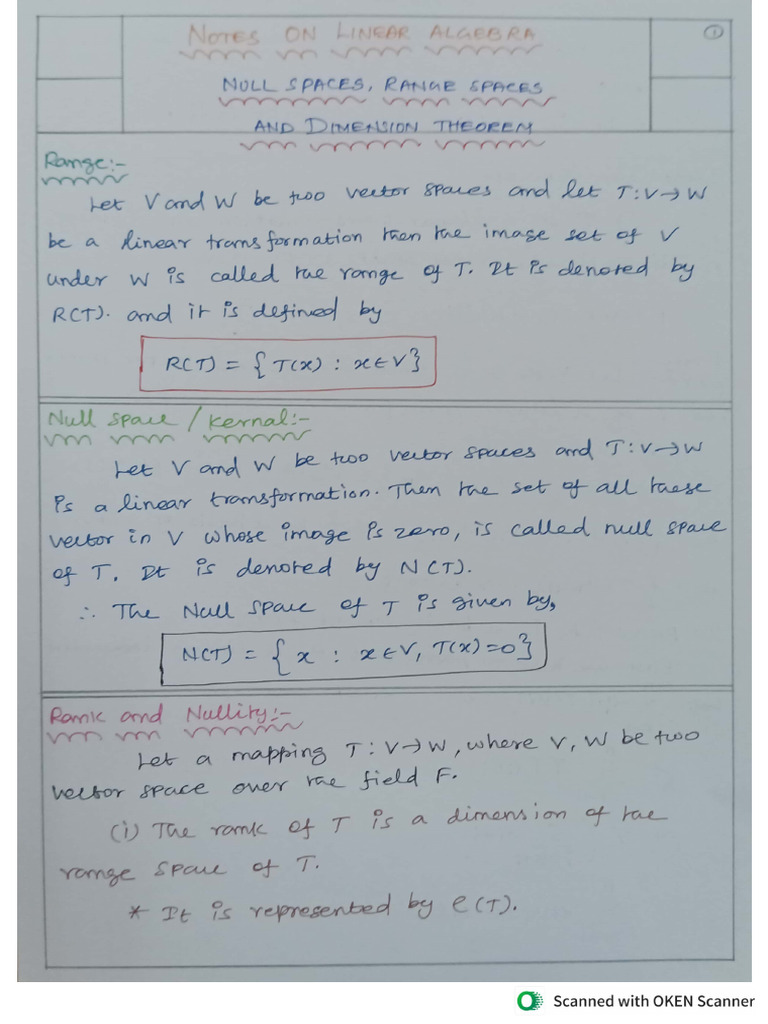 NOTES ON LINEAR ALGEBRA
①
NULL SPACES, RANGE SPACES
AND DIMENSION THEOREM
Range:-
Let V and W be two vector spaces and let T:V→W
be a linear transformation then the image set of V
under W is called the range of T. It is denoted by
R(T). and it is defined by
R(T) = { T(x) : x∈V}
Null space / Kernal:-
Let V and W be two vector spaces and T:V→W
is a linear transformation. Then the set of all these
vector in V whose image is zero, is called null space
of T. It is denoted by N(T).
∴ The Null space of T is given by,
N(T) = { x : x∈V, T(x)=0}
Rank and Nullity:-
Let a mapping T:V→W, where V, W be two
vector space over the field F.
(i) The rank of T is a dimension of the
range space of T.
* It is represented by ρ(T).
Scanned with OKEN Scanner